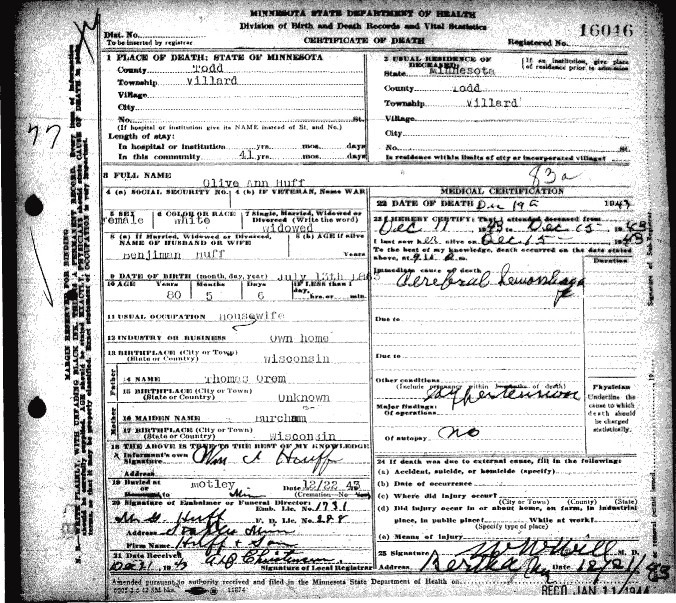 MINNESOTA STATE DEPARTMENT OF HEALTH
Division of Birth and Death Records and Vital Statistics
CERTIFICATE OF DEATH
16046
Dist. No.
To be inserted by registrar
Registered No.
1 PLACE OF DEATH: STATE OF MINNESOTA
County Todd
Township Villard
Village
City
No. St.
(If hospital or institution give its NAME instead of St. and No.)
Length of stay:
In hospital or institution yrs. mos. days
In this community 41 yrs. mos. days
2 USUAL RESIDENCE OF DECEASED:
(If an institution, give place of residence prior to admission
State Minnesota
County Todd
Township Villard
Village
City
No. St.
In residence within limits of city or incorporated village?
83a
77
3 FULL NAME
Olive Ann Huff
4 (a) SOCIAL SECURITY NO. 4 (b) IF VETERAN, NAME WAR
5 SEX female
6 COLOR OR RACE white
7 Single, Married, Widowed or Divorced (Write the word) widowed
8 (a) If Married, Widowed or Divorced, NAME OF HUSBAND OR WIFE
8 (b) AGE if alive
Benjiman Huff Years
9 DATE OF BIRTH (month, day, year) July 13th 1863
10 AGE Years Months Days IF LESS than 1 day,
80 5 6 hrs. or min.
11 USUAL OCCUPATION Housewife
12 INDUSTRY OR BUSINESS Own home
13 BIRTHPLACE (City or Town)
(State or Country) Wisconsin
Father
14 NAME Thomas Orom
15 BIRTHPLACE (City or Town)
(State or Country) Unknown
Mother
16 MAIDEN NAME Burcham
17 BIRTHPLACE (City or Town)
(State or Country) Wisconsin
18 THE ABOVE IS TRUE TO THE BEST OF MY KNOWLEDGE
Informant's own Signature Wm A Houff
Address
19 Buried at Motley Min 12/22 43
(Cremation No.
20 Signature of Embalmer or Funeral Director:
Emb. Lic. No. 1731
M. G. Huff F. D. Lic. No. 288
Address Staples Minn
Firm Name Huff & Son
21 Date Received
Signature of Local Registrar
MEDICAL CERTIFICATION
22 DATE OF DEATH Dec 19 1943
23 I HEREBY CERTIFY: That I attended deceased from
Dec 11 1943 to Dec 15 1943
I last saw her alive on Dec 15 1943
To the best of my knowledge, death occurred on the date stated
above, at
Duration
Immediate cause of death
Cerebral hemorrhage
Due to
Due to
Other conditions
(Include pregnancy within months of death)
Hypertension
Major findings:
Of operations
Of autopsy no
Physician
Underline the cause to which death should be charged statistically.
24 If death was due to external cause, fill in the following:
(a) Accident, suicide, or homicide (specify)
(b) Date of occurrence
(c) Where did injury occur?
(City or Town) (County) (State)
(d) Did injury occur in or about home, on farm, in industrial
place, in public place? While at work?
(Specify type of place)
(e) Means of injury
25 Signature M. D.
Address Bertha 12/21/43
Amended pursuant to authority received and filed in the Minnesota State Department of Health on
REC'D JAN 11 1944